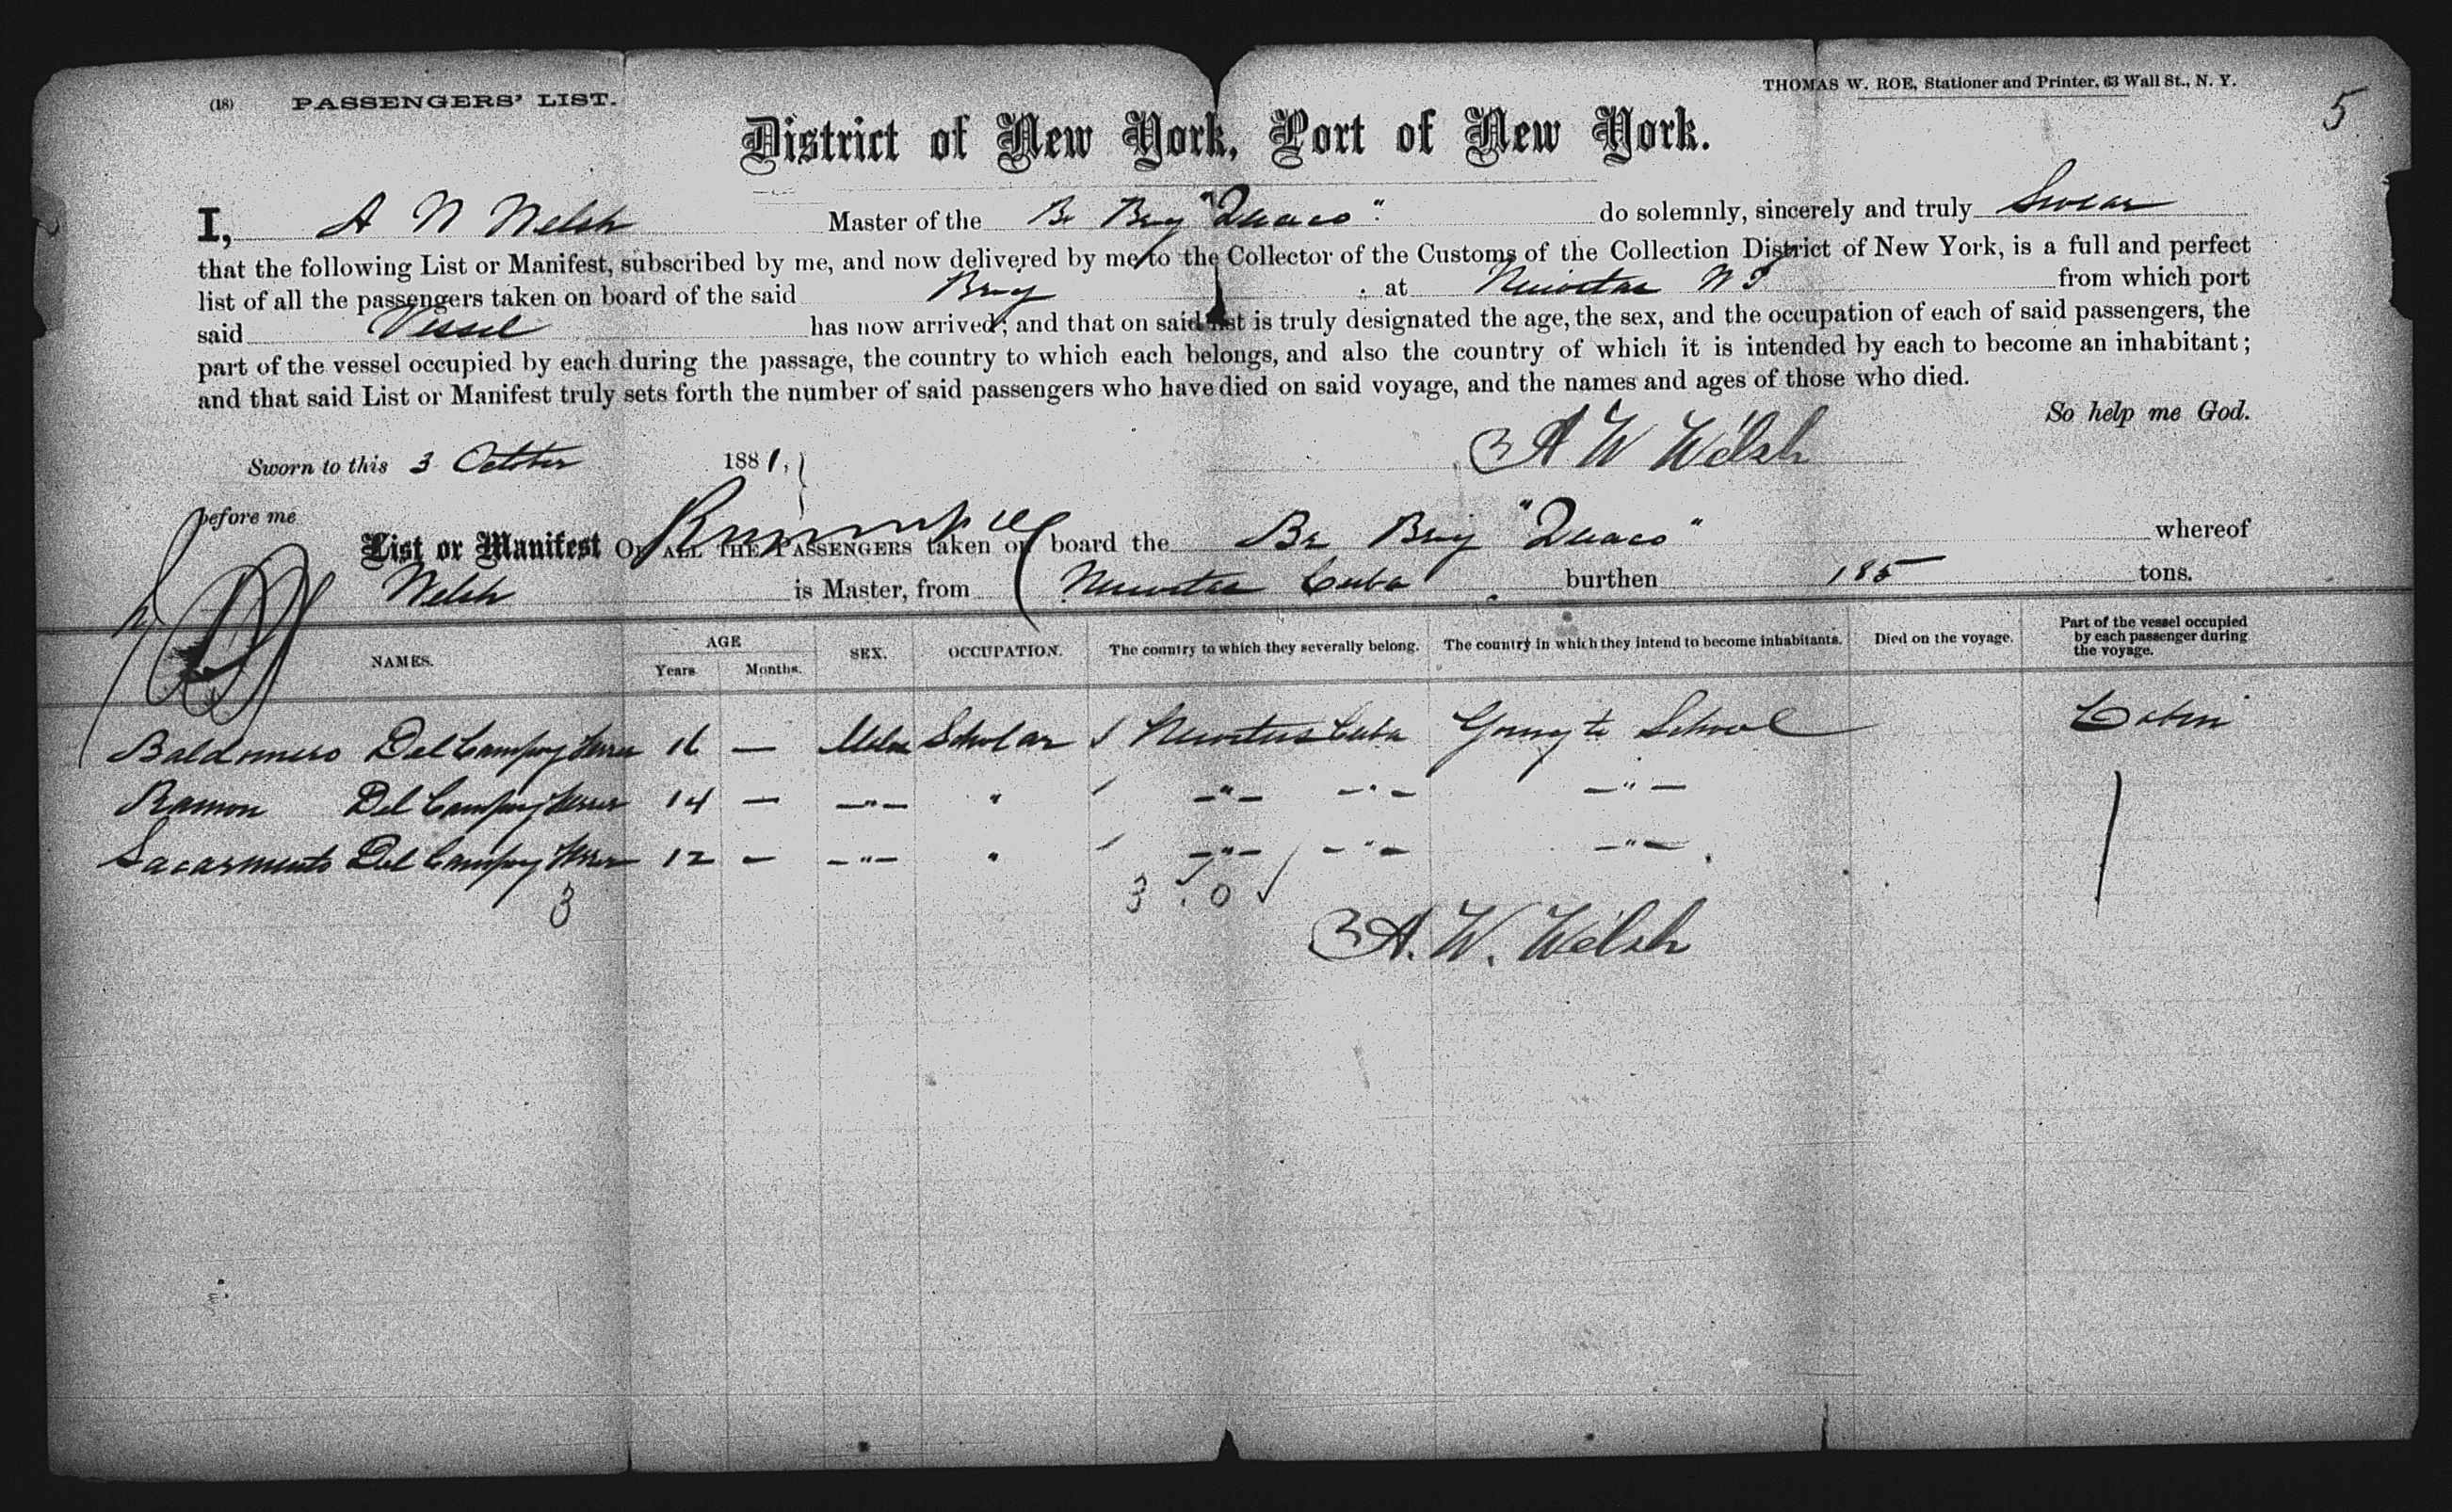 (18) PASSENGERS' LIST.
THOMAS W. ROE, Stationer and Printer, 63 Wall St., N. Y.
5
District of New York, Port of New York.
I, A W Welsh Master of the Br Brig "Quaco". do solemnly, sincerely and truly Swear
that the following List or Manifest, subscribed by me, and now delivered by me to the Collector of the Customs of the Collection District of New York, is a full and perfect
list of all the passengers taken on board of the said Brig at Nuevitas W I from which port
said Vessel has now arrived; and that on said list is truly designated the age, the sex, and the occupation of each of said passengers, the
part of the vessel occupied by each during the passage, the country to which each belongs, and also the country of which it is intended by each to become an inhabitant;
and that said List or Manifest truly sets forth the number of said passengers who have died on said voyage, and the names and ages of those who died.
So help me God.
Sworn to this 3 October 1881,
A W Welsh
before me
List or Manifest OF ALL THE PASSENGERS taken on board the Br Brig "Quaco" whereof
Welsh is Master, from Nuevitas Cuba burthen 185 tons.
NAMES. AGE Years Months. SEX. OCCUPATION. The country to which they severally belong. The country in which they intend to become inhabitants. Died on the voyage. Part of the vessel occupied by each passenger during the voyage.
Baldomero Del Campo y 16 — Male Scholar / Nuevitas Cuba Going to School Cabin
Ramon Del Campo y 14 — —"— " / —"— —"— —"—
Sacarmento Del Campo y 12 — —"— " / —"— —"— —"—
3 3 . 0 √
A. W. Welsh